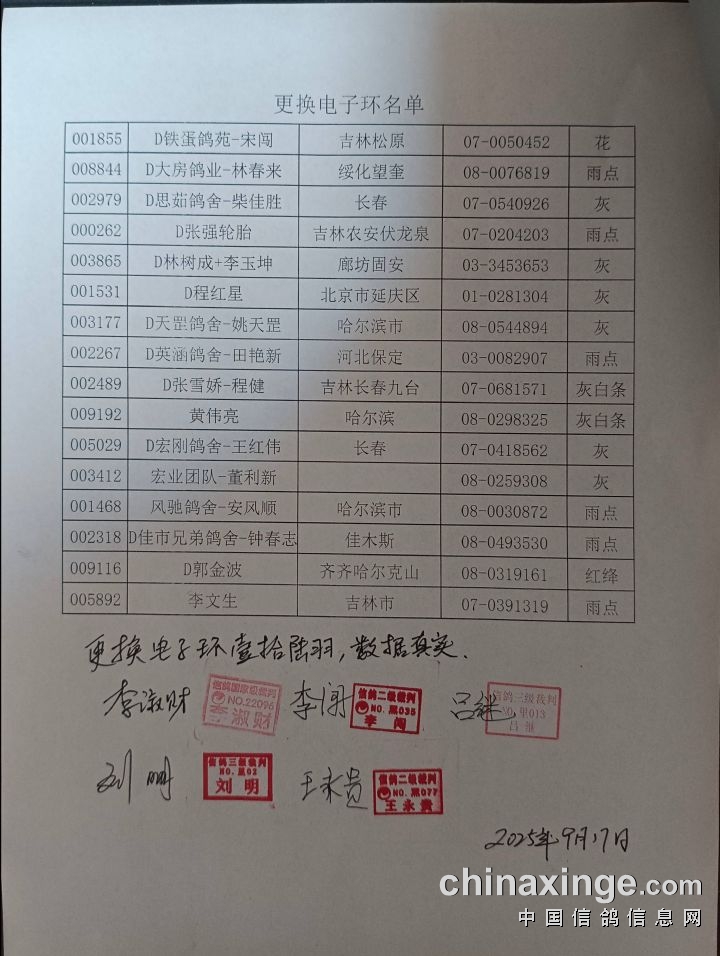 更换电子环名单
001855 D铁蛋鸽苑-宋闯 吉林松原 07-0050452 花
008844 D大房鸽业-林春来 绥化望奎 08-0076819 雨点
002979 D思茹鸽舍-柴佳胜 长春 07-0540926 灰
000262 D张强轮胎 吉林农安伏龙泉 07-0204203 雨点
003865 D林树成+李玉坤 廊坊固安 03-3453653 灰
001531 D程红星 北京市延庆区 01-0281304 灰
003177 D天罡鸽舍-姚天罡 哈尔滨市 08-0544894 灰
002267 D英涵鸽舍-田艳新 河北保定 03-0082907 雨点
002489 D张雪娇-程健 吉林长春九台 07-0681571 灰白条
009192 黄伟亮 哈尔滨 08-0298325 灰白条
005029 D宏刚鸽舍-王红伟 长春 07-0418562 灰
003412 宏业团队-董利新 08-0259308 灰
001468 风驰鸽舍-安风顺 哈尔滨市 08-0030872 雨点
002318 D佳市兄弟鸽舍-钟春志 佳木斯 08-0493530 雨点
009116 D郭金波 齐齐哈尔克山 08-0319161 红绛
005892 李文生 吉林市 07-0391319 雨点
更换电子环壹拾陆羽,数据真实.
李淑财 李闯 吕继
信鸽国家级裁判
NO.22096
李淑财
信鸽二级裁判
NO.黑035
李 闯
信鸽三级裁判
NO.黑013
吕 继
刘明 王永贵
信鸽三级裁判
NO.黑02
刘 明
信鸽二级裁判
NO.黑077
王永贵
2025年9月17日
chinaxinge.com
中国信鸽信息网